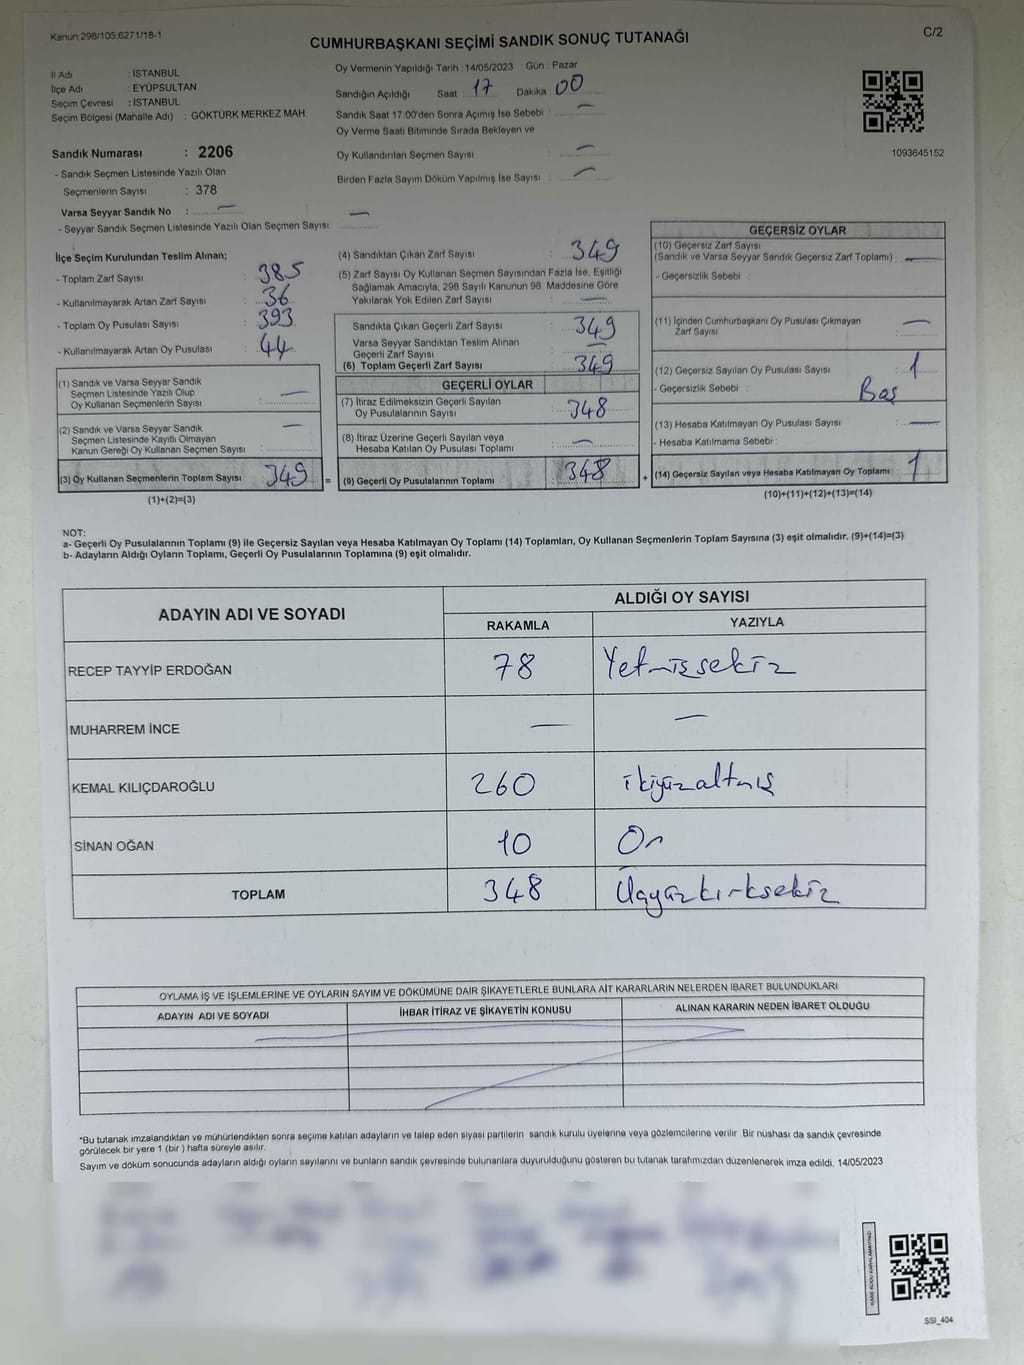 Kanun.298/105,6271/18-1
C/2
CUMHURBAŞKANI SEÇİMİ SANDIK SONUÇ TUTANAĞI
İl Adı : İSTANBUL
İlçe Adı : EYÜPSULTAN
Seçim Çevresi : İSTANBUL
Seçim Bölgesi (Mahalle Adı) : GÖKTÜRK MERKEZ MAH.
Sandık Numarası : 2206
- Sandık Seçmen Listesinde Yazılı Olan
Seçmenlerin Sayısı : 378
Varsa Seyyar Sandık No : —
- Seyyar Sandık Seçmen Listesinde Yazılı Olan Seçmen Sayısı: —
Oy Vermenin Yapıldığı Tarih : 14/05/2023 Gün : Pazar
Sandığın Açıldığı Saat : 17 Dakika : 00
Sandık Saat 17:00'den Sonra Açımış İse Sebebi : —
Oy Verme Saati Bitiminde Sırada Bekleyen ve
Oy Kullandırılan Seçmen Sayısı : —
Birden Fazla Sayım Döküm Yapılmış İse Sayısı : —
1093645152
İlçe Seçim Kurulundan Teslim Alınan;
- Toplam Zarf Sayısı : 385
- Kullanılmayarak Artan Zarf Sayısı : 36
- Toplam Oy Pusulası Sayısı : 393
- Kullanılmayarak Artan Oy Pusulası : 44
(1) Sandık ve Varsa Seyyar Sandık
Seçmen Listesinde Yazılı Olup
Oy Kullanan Seçmenlerin Sayısı : —
(2) Sandık ve Varsa Seyyar Sandık
Seçmen Listesinde Kayıtlı Olmayan
Kanun Gereği Oy Kullanan Seçmen Sayısı : —
(3) Oy Kullanan Seçmenlerin Toplam Sayısı 349
(1)+(2)=(3)
=
(4) Sandıktan Çıkan Zarf Sayısı : 349
(5) Zarf Sayısı Oy Kullanan Seçmen Sayısından Fazla İse, Eşitliği
Sağlamak Amacıyla, 298 Sayılı Kanunun 98. Maddesine Göre
Yakılarak Yok Edilen Zarf Sayısı : —
Sandıkta Çıkan Geçerli Zarf Sayısı : 349
Varsa Seyyar Sandıktan Teslim Alınan
Geçerli Zarf Sayısı : —
(6) Toplam Geçerli Zarf Sayısı : 349
GEÇERLİ OYLAR
(7) İtiraz Edilmeksizin Geçerli Sayılan
Oy Pusulalarının Sayısı : 348
(8) İtiraz Üzerine Geçerli Sayılan veya
Hesaba Katılan Oy Pusulası Toplamı : —
(9) Geçerli Oy Pusulalarının Toplamı : 348
+
GEÇERSİZ OYLAR
(10) Geçersiz Zarf Sayısı
(Sandık ve Varsa Seyyar Sandık Geçersiz Zarf Toplamı) : —
- Geçersizlik Sebebi :
(11) İçinden Cumhurbaşkanı Oy Pusulası Çıkmayan
Zarf Sayısı : —
(12) Geçersiz Sayılan Oy Pusulası Sayısı : 1
- Geçersizlik Sebebi : Boş
(13) Hesaba Katılmayan Oy Pusulası Sayısı : —
- Hesaba Katılmama Sebebi :
(14) Geçersiz Sayılan veya Hesaba Katılmayan Oy Toplamı : 1
(10)+(11)+(12)+(13)=(14)
NOT:
a- Geçerli Oy Pusulalarının Toplamı (9) ile Geçersiz Sayılan veya Hesaba Katılmayan Oy Toplamı (14) Toplamları, Oy Kullanan Seçmenlerin Toplam Sayısına (3) eşit olmalıdır. (9)+(14)=(3)
b- Adayların Aldığı Oyların Toplamı, Geçerli Oy Pusulalarının Toplamına (9) eşit olmalıdır.
ADAYIN ADI VE SOYADI ALDIĞI OY SAYISI
RAKAMLA YAZIYLA
RECEP TAYYİP ERDOĞAN 78 Yetmişsekiz
MUHARREM İNCE — —
KEMAL KILIÇDAROĞLU 260 ikiyüzaltmış
SİNAN OĞAN 10 On
TOPLAM 348 Üçyüzkırksekiz
OYLAMA İŞ VE İŞLEMLERİNE VE OYLARIN SAYIM VE DÖKÜMÜNE DAİR ŞİKAYETLERLE BUNLARA AİT KARARLARIN NELERDEN İBARET BULUNDUKLARI
ADAYIN ADI VE SOYADI İHBAR İTİRAZ VE ŞİKAYETİN KONUSU ALINAN KARARIN NEDEN İBARET OLDUĞU
*Bu tutanak imzalandıktan ve mühürlendikten sonra seçime katılan adayların ve talep eden siyasi partilerin sandık kurulu üyelerine veya gözlemcilerine verilir. Bir nüshası da sandık çevresinde
görülecek bir yere 1 (bir ) hafta süreyle asılır.
Sayım ve döküm sonucunda adayların aldığı oyların sayılarını ve bunların sandık çevresinde bulunanlara duyurulduğunu gösteren bu tutanak tarafımızdan düzenlenerek imza edildi. 14/05/2023
KARE KODU KARALAMAYINIZ!
SSI_404